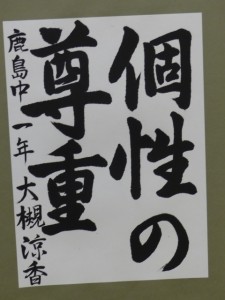 個性の
尊重
鹿島中一年 大槻涼香